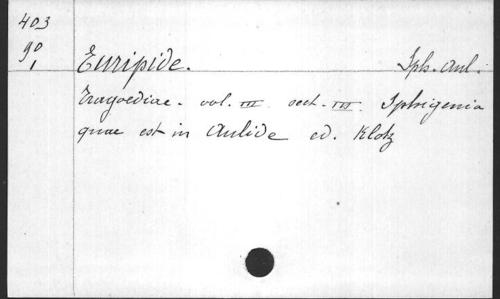 403
90
1
Euripide. Iph. Aul.
Tragoediae. vol. III sect. III Iphigenia
quae est in Aulide ed. Klotz